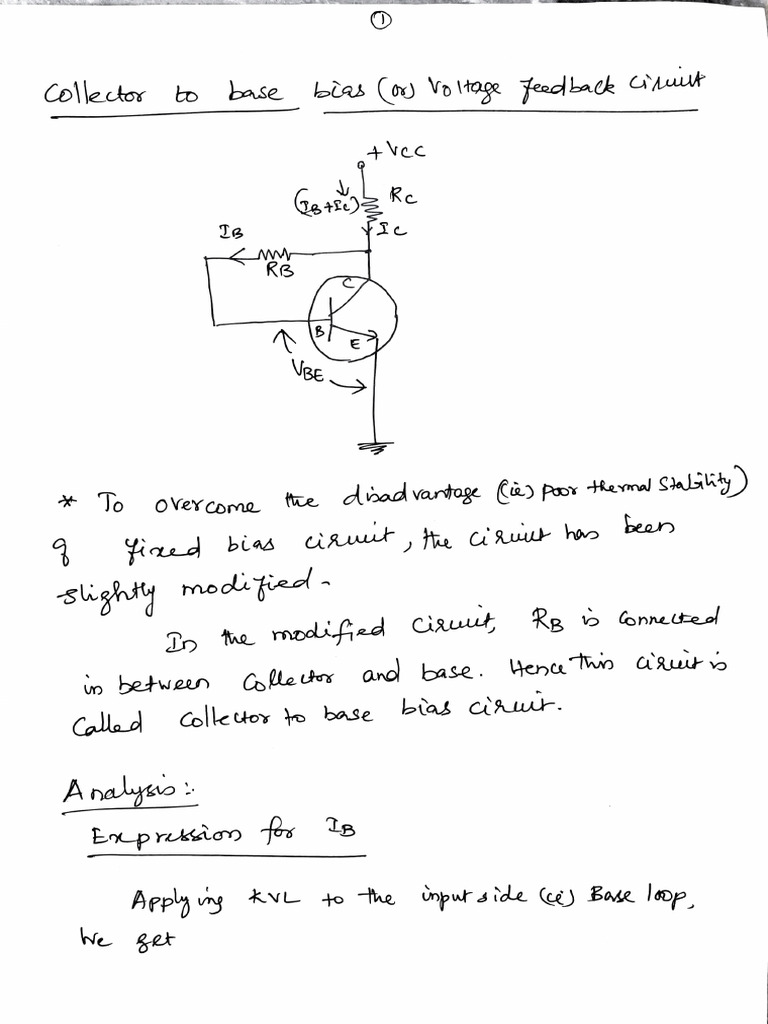 1
Collector to base bias (or) Voltage feedback circuit
+VCC
(IB+IC)
RC
IB
IC
RB
C
B
E
VBE
* To overcome the disadvantage (ie) poor thermal stability)
of fixed bias circuit, the circuit has been
slightly modified.
In the modified circuit, RB is connected
in between collector and base. Hence this circuit is
called collector to base bias circuit.
Analysis:
Expression for IB
Applying KVL to the input side (ie) Base loop,
We get